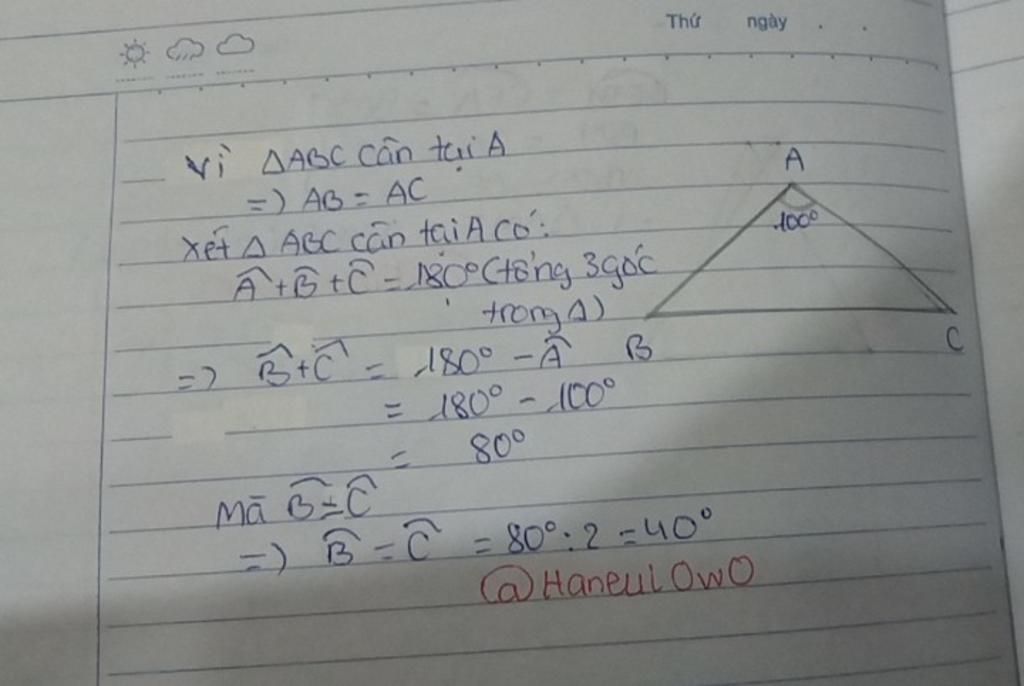 Thứ ngày . .
Vì ΔABC cân tại A
=) AB = AC
Xét Δ ABC cân tại A có:
Â+B̂+Ĉ = 180° (tổng 3 góc
trong Δ)
=) B̂+Ĉ = 180° - Â
= 180° - 100°
= 80°
Mà B̂=Ĉ
=) B̂ = Ĉ = 80° : 2 = 40°
@Haneul OwO
A
100°
B
C